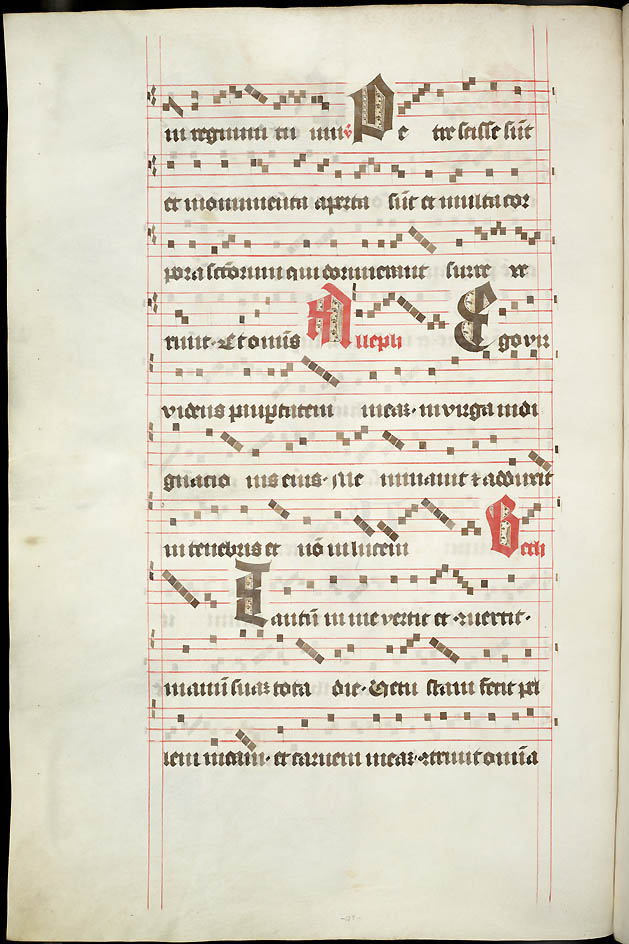 in regnum tu um ℣ Pe tre scisse sūt
et monumenta aperta sūt et multa cor
pora sctōrum qui dormierunt surre xe
runt. Et omīs Alleph Ego vir
videns paup̱tatem meaꝫ in virga indi
gnatio nis eius. Me minauit ⁊ adduxit
in tenebris et nō in lucem Beth
Tantū in me vertit et ɔuertit.
manū suaꝫ tota die. Vetustam fecit pel
lem meam. et carnem meaꝫ. ɔtriuit om̄ia